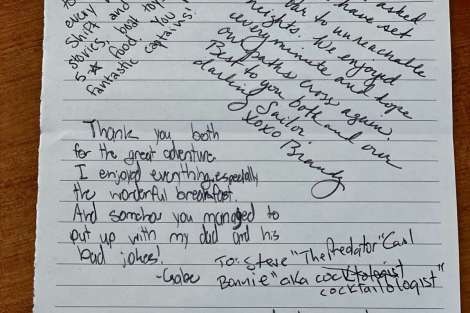 every
Shift and
stories, boat
5 ☆ food. You
fantastic captains!
asked
have set
bar to unreachable
heights. We enjoyed
every minute and hope
our paths cross again.
Best to you both and our
darling Sailor.
xoxo Brandy
Thank you both
for the great adventure.
I enjoyed everything, especially
the wonderful breakfast.
And somehow you managed to
put up with my dad and his
bad jokes!
-Gabe
To: Steve "The Predator" Carl
Bonnie "aka cocktologist
cocktailologist"